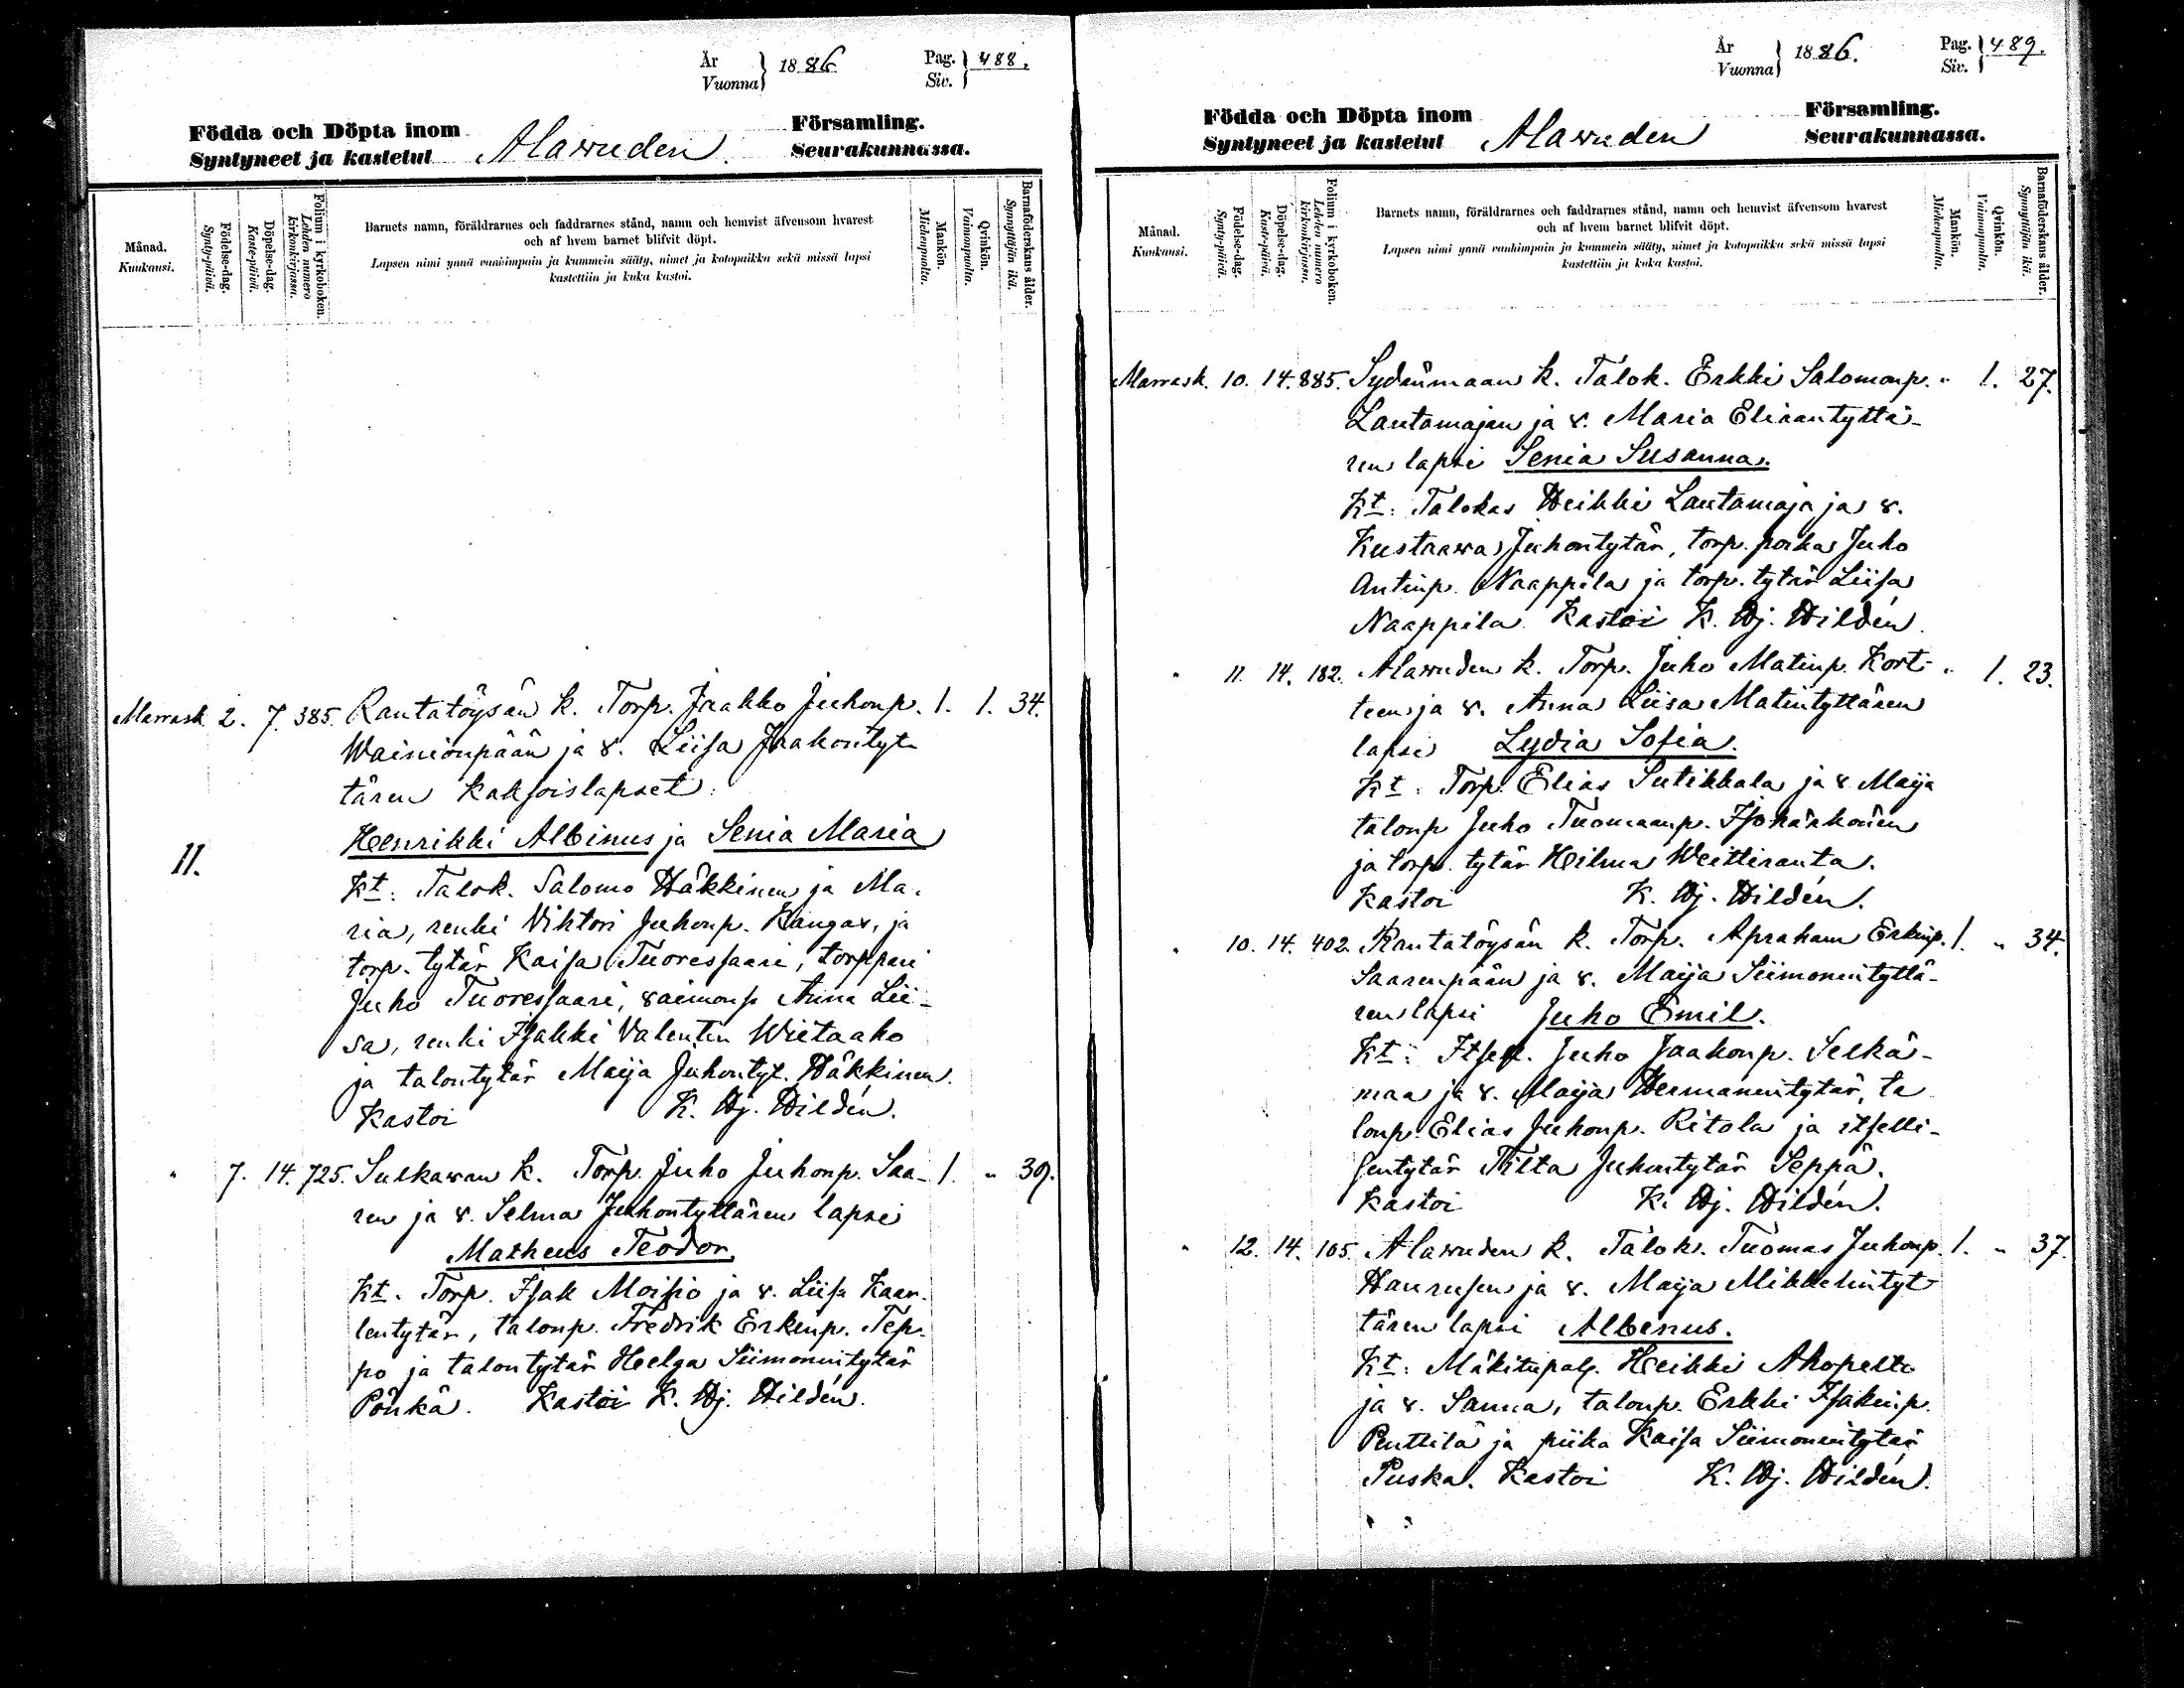 År
Vuonna } 1886
Pag.
Siv. } 488.
Födda och Döpta inom
Syntyneet ja kastetut
Alawuden
Församling.
Seurakunnassa.
Månad.
Kuukausi.
Födelse-dag.
Synty-päivä.
Döpelse-dag.
Kaste-päivä.
Folium i kyrkoboken.
Lehden numero
kirkonkirjassa.
Barnets namn, föräldrarnes och faddrarnes stånd, namn och hemvist äfvensom hvarest
och af hvem barnet blifvit döpt.
Lapsen nimi ynnä vanhimpain ja kummein sääty, nimet ja kotopaikka sekä missä lapsi
kastettiin ja kuka kastoi.
Mankön.
Miehenpuolta.
Qvinkön.
Vaimonpuolta.
Barnaföderskans ålder.
Synnyttäjän ikä.
Marrask. 2. 7. 385. Rantatöysän k. Torp. Jaakko Juhonp. 1. 1. 34.
Wainionpään ja v. Liisa Jaakontyt
tären kaksoislapset:
Henrikki Albinus ja Senia Maria
11.
Kt: Talok. Salomo Häkkinen ja Ma-
ria, renki Vihtori Juhonp. Kangas, ja
torp. tytär Kaisa Tuoressaari, torppari
Juho Tuoressaari, vaimonp Anna Lii-
sa, renki Isakki Valentin Wiitaaho
ja talontytär Maija Juhontyt. Häkkinen.
Kastoi K. Hj. Hildén.
" 7. 14. 725. Sulkawan k. Torp. Juho Juhonp. Saa- 1. " 39.
ren ja v. Selma Juhontyttären lapsi
Matheus Teodor
Kt. Torp. Isak Moisio ja v. Liisa Kaar-
lentytär, talonp. Fredrik Erkinp. Tep-
po ja talontytär Helga Siimonintytär
Pönkä. Kastoi K. Hj. Hildén.
År
Vuonna } 1886.
Pag.
Siv. } 489.
Födda och Döpta inom
Syntyneet ja kastetut
Alawuden
Församling.
Seurakunnassa.
Månad.
Kuukausi.
Födelse-dag.
Synty-päivä.
Döpelse-dag.
Kaste-päivä.
Folium i kyrkoboken.
Lehden numero
kirkonkirjassa.
Barnets namn, föräldrarnes och faddrarnes stånd, namn och hemvist äfvensom hvarest
och af hvem barnet blifvit döpt.
Lapsen nimi ynnä vanhimpain ja kummein sääty, nimet ja kotopaikka sekä missä lapsi
kastettiin ja kuka kastoi.
Mankön.
Miehenpuolta.
Qvinkön.
Vaimonpuolta.
Barnaföderskans ålder.
Synnyttäjän ikä.
Marrask. 10. 14. 885. Sydänmaan k. Talok. Erkki Salomonp. " 1. 27.
Lautamajan ja v. Maria Eliaantyttä-
ren lapsi Senia Susanna.
Kt: Talokas Heikki Lautamaja ja v.
Kustaawa Juhontytär, torp. poika Juho
Antinp. Naappila ja torp. tytär Liisa
Naappila. Kastoi K. Hj. Hildén.
" 11. 14. 182. Alawuden k. Torp. Juho Matinp. Kort- " 1. 23.
teen ja v. Anna Liisa Matintyttären
lapsi Lydia Sofia.
Kt: Torp. Elias Sutikkala ja v. Maija
talonp Juho Tuomaanp. Isohärkönen
ja torp. tytär Hilma Weittiranta.
Kastoi K. Hj. Hildén.
" 10. 14. 402. Rantatöysän k. Torp. Apraham Erkinp. 1. " 34.
Saarenpään ja v. Maija Siimonintyttä-
ren lapsi Juho Emil.
Kt: Itsell. Juho Jaakonp. Selkä-
maa ja v. Maija Hermanintytär, ta
lonp. Elias Juhonp. Ritola ja itselli-
sentytär Tilta Juhontytär Seppä.
Kastoi K. Hj. Hildén.
" 12. 14. 105. Alawuden k. Talok. Tuomas Juhonp. 1. " 37.
Hanrusen ja v. Maija Mikkelintyt
tären lapsi Albinus.
Kt: Mäkitupal. Heikki Ahopelto
ja v. Sanna, talonp. Erkki Isakinp.
Penttilä ja piika Kaisa Siimonintytär
Puska. Kastoi K. Hj. Hildén.